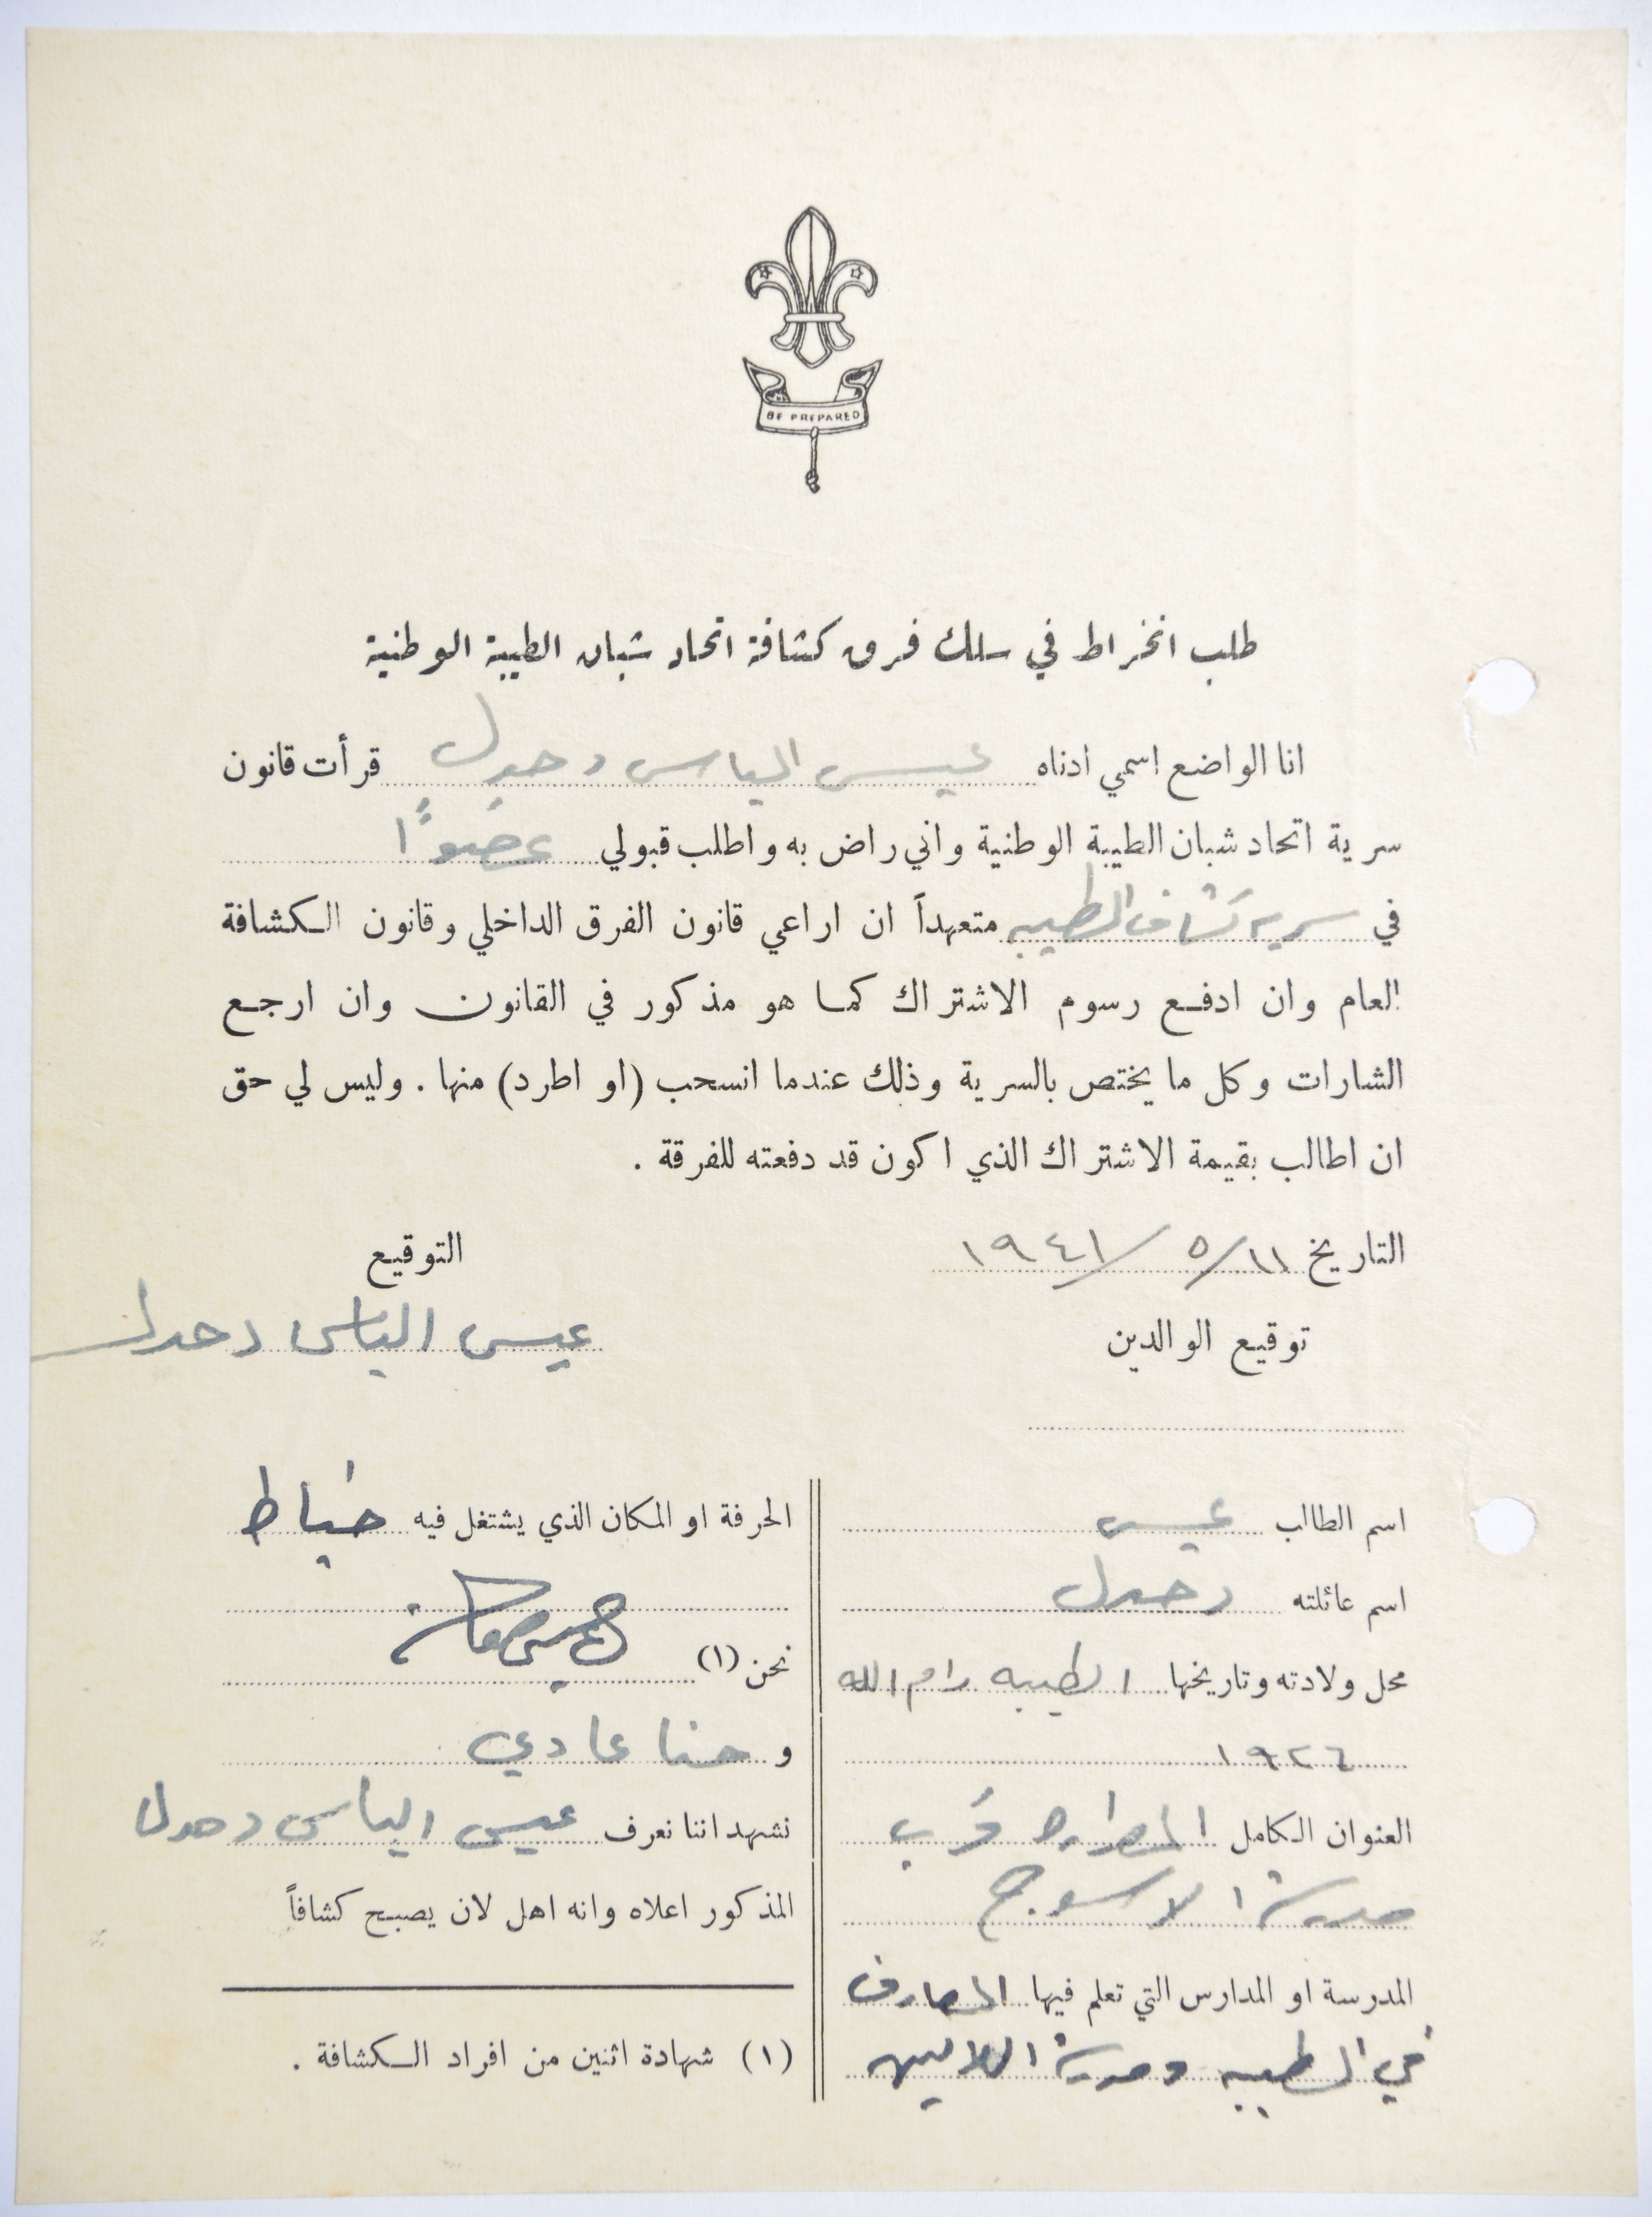 BE PREPARED
طلب انخراط في سلك فرق كشافة اتحاد شبان الطيبة الوطنية
انا الواضع اسمي ادناه عيسى الياس دحدل قرأت قانون
سرية اتحاد شبان الطيبة الوطنية واني راض به واطلب قبولي عضوًا
في سرية كشاف الطيبه متعهداً ان اراعي قانون الفرق الداخلي وقانون الكشافة
العام وان ادفع رسوم الاشتراك كما هو مذكور في القانون وان ارجع
الشارات وكل ما يختص بالسرية وذلك عندما انسحب (او اطرد) منها . وليس لي حق
ان اطالب بقيمة الاشتراك الذي اكون قد دفعته للفرقة .
التاريخ ١١/٥/١٩٤١
التوقيع
عيسى الياس دحدل
توقيع الوالدين
اسم الطالب عيسى
اسم عائلته دحدل
محل ولادته وتاريخها الطيبه رام الله
١٩٢٦
العنوان الكامل المصراره قرب
مدرسة الاسوج
المدرسة او المدارس التي تعلم فيها المعارف
في الطيبه ومدرسة اللاتين
الحرفة او المكان الذي يشتغل فيه خياط
نحن (١)
و حنا عادي
نشهد اننا نعرف عيسى الياس دحدل
المذكور اعلاه وانه اهل لان يصبح كشافاً
(١) شهادة اثنين من افراد الكشافة .